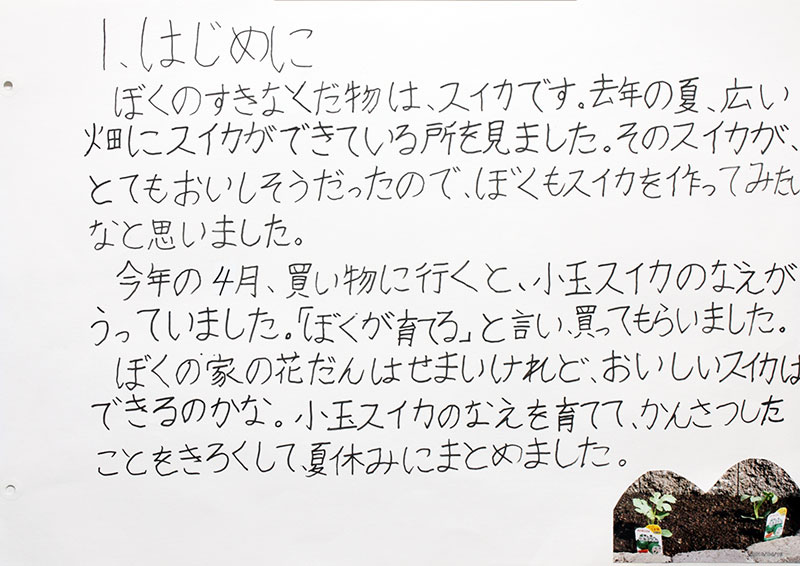 1、はじめに
ぼくのすきなくだ物は、スイカです。去年の夏、広い
畑にスイカができている所を見ました。そのスイカが、
とてもおいしそうだったので、ぼくもスイカを作ってみたい
なと思いました。
今年の4月、買い物に行くと、小玉スイカのなえが
うっていました。「ぼくが育てる」と言い、買ってもらいました。
ぼくの家の花だんはせまいけれど、おいしいスイカは
できるのかな。小玉スイカのなえを育てて、かんさつした
ことをきろくして、夏休みにまとめました。